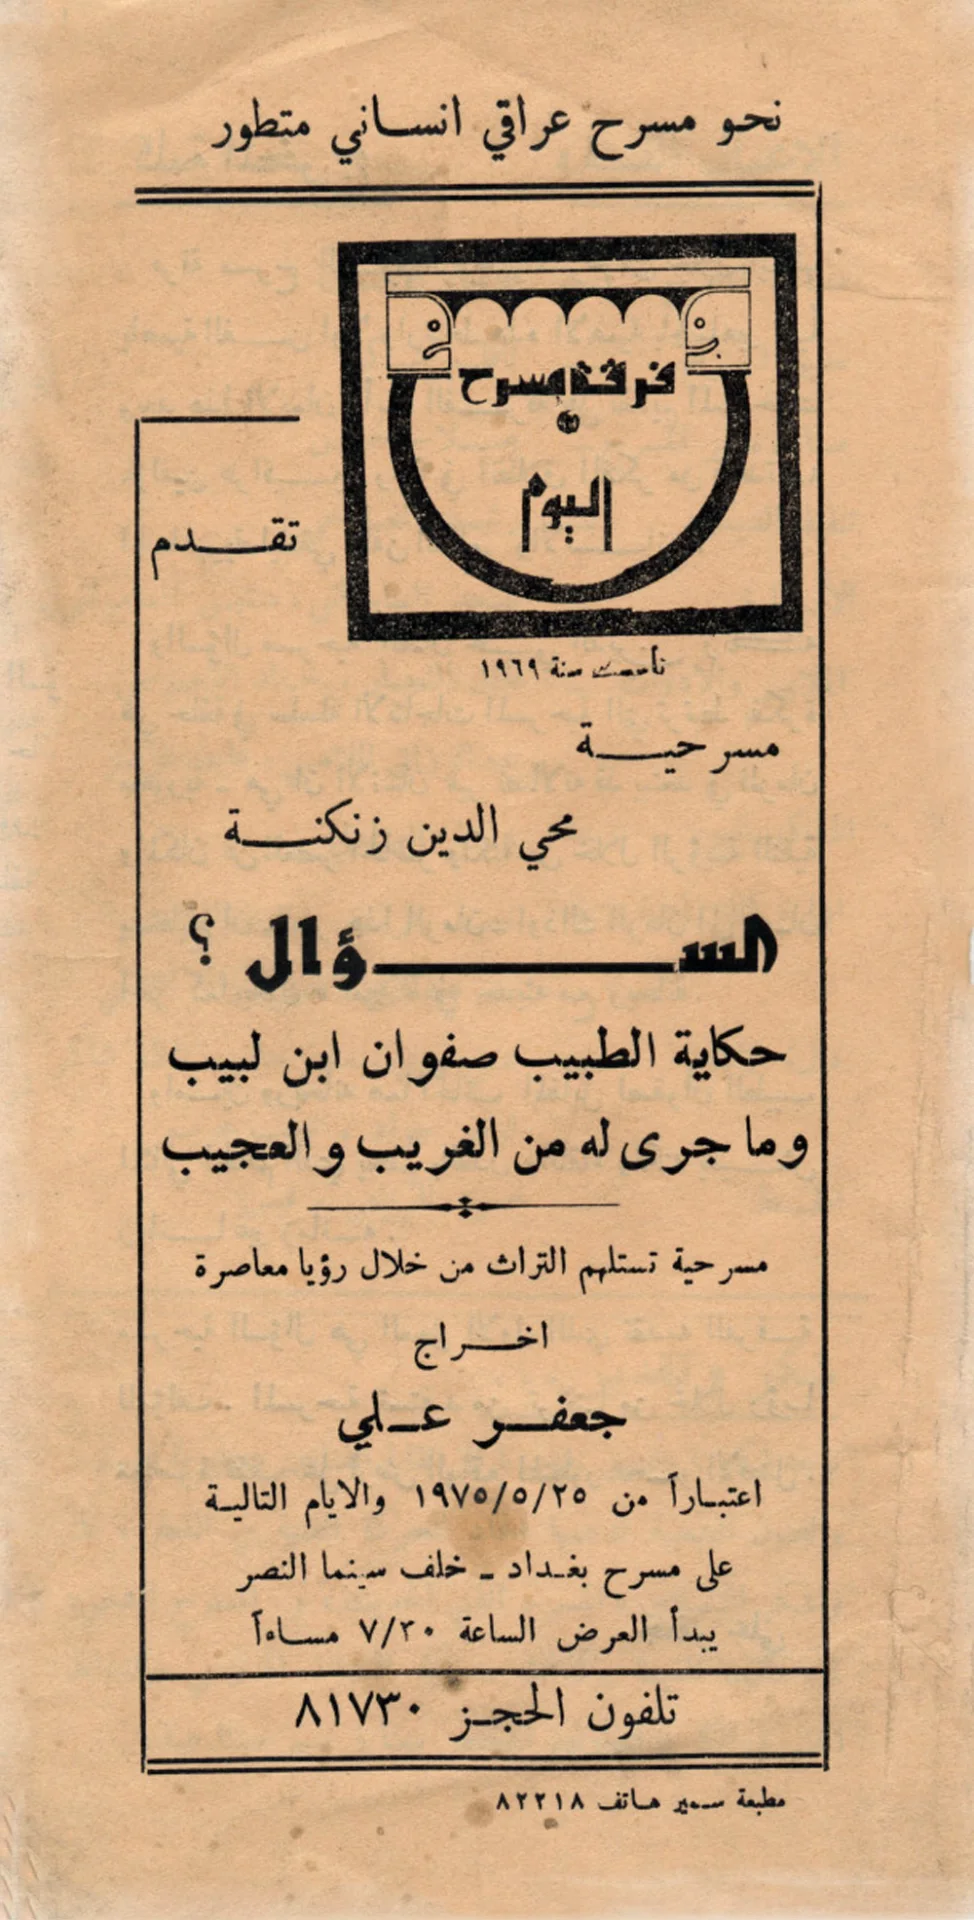 نحو مسرح عراقي انساني متطور
فرقة مسرح
اليوم
تقدم
تأسست سنة ١٩٦٩
مسرحية
محي الدين زنكنة
السؤال ؟
حكاية الطبيب صفوان ابن لبيب
وما جرى له من الغريب والعجيب
مسرحية تستلهم التراث من خلال رؤيا معاصرة
اخراج
جعفر علي
اعتباراً من ١٩٧٥/٥/٢٥ والايام التالية
على مسرح بغداد ـ خلف سينما النصر
يبدأ العرض الساعة ٧/٣٠ مساءاً
تلفون الحجز ٨١٧٣٠
مطبعة سمير هاتف ٨٢٢١٨